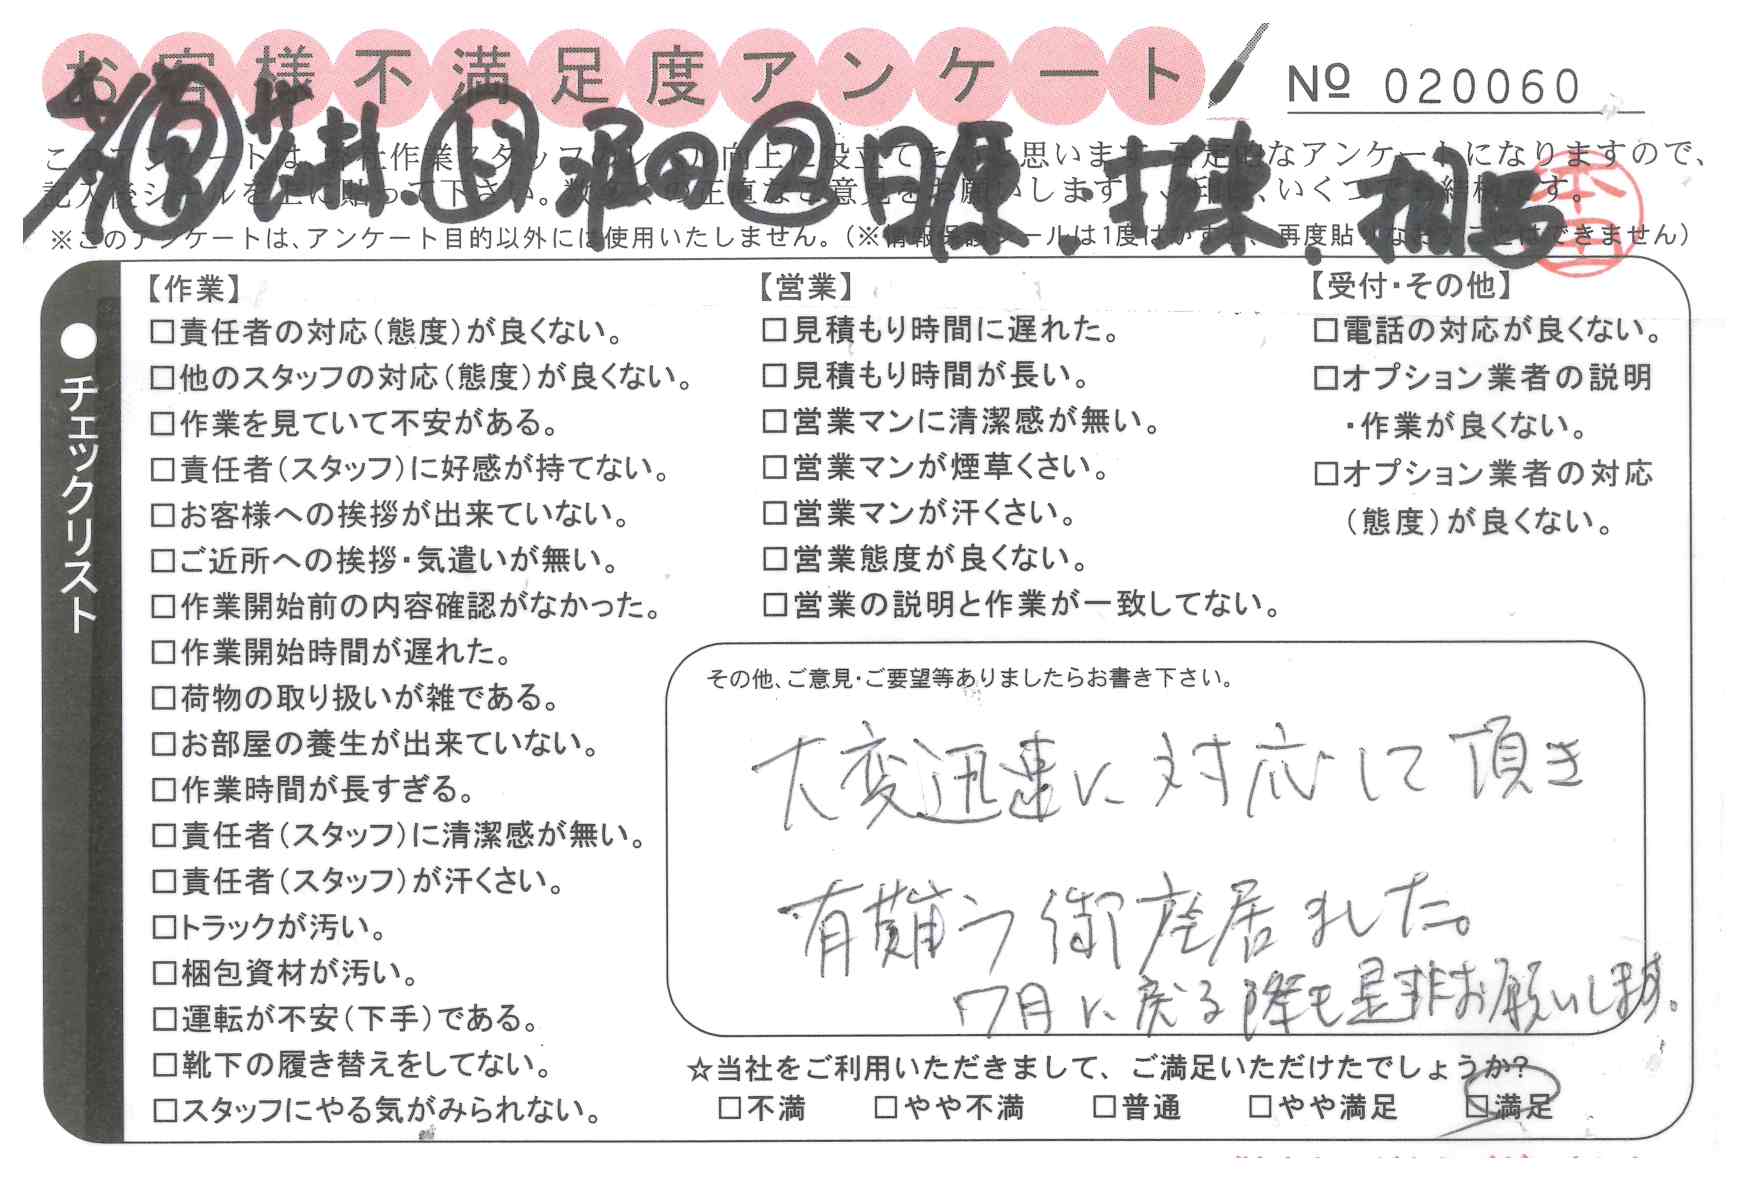 お客様不満足度アンケート
№ 020060
このアンケートは、当社作業スタッフのレベル向上に役立てたいと思います。否定的なアンケートになりますので、
記入後シールを上に貼って下さい。数々の正直なご意見をお願いします。いくつでも結構です。
※このアンケートは、アンケート目的以外には使用いたしません。(※情報保護シールは1度はがすと、再度貼りなおすことはできません)
本田
●チェックリスト
【作業】
□責任者の対応(態度)が良くない。
□他のスタッフの対応(態度)が良くない。
□作業を見ていて不安がある。
□責任者(スタッフ)に好感が持てない。
□お客様への挨拶が出来ていない。
□ご近所への挨拶・気遣いが無い。
□作業開始前の内容確認がなかった。
□作業開始時間が遅れた。
□荷物の取り扱いが雑である。
□お部屋の養生が出来ていない。
□作業時間が長すぎる。
□責任者(スタッフ)に清潔感が無い。
□責任者(スタッフ)が汗くさい。
□トラックが汚い。
□梱包資材が汚い。
□運転が不安(下手)である。
□靴下の履き替えをしてない。
□スタッフにやる気がみられない。
【営業】
□見積もり時間に遅れた。
□見積もり時間が長い。
□営業マンに清潔感が無い。
□営業マンが煙草くさい。
□営業マンが汗くさい。
□営業態度が良くない。
□営業の説明と作業が一致してない。
【受付・その他】
□電話の対応が良くない。
□オプション業者の説明
・作業が良くない。
□オプション業者の対応
(態度)が良くない。
その他、ご意見・ご要望等ありましたらお書き下さい。
大変迅速に対応して頂き
有難う御座居ました。
7月に戻る際も是非お願いします。
☆当社をご利用いただきまして、ご満足いただけたでしょうか?
□不満 □やや不満 □普通 □やや満足 □満足